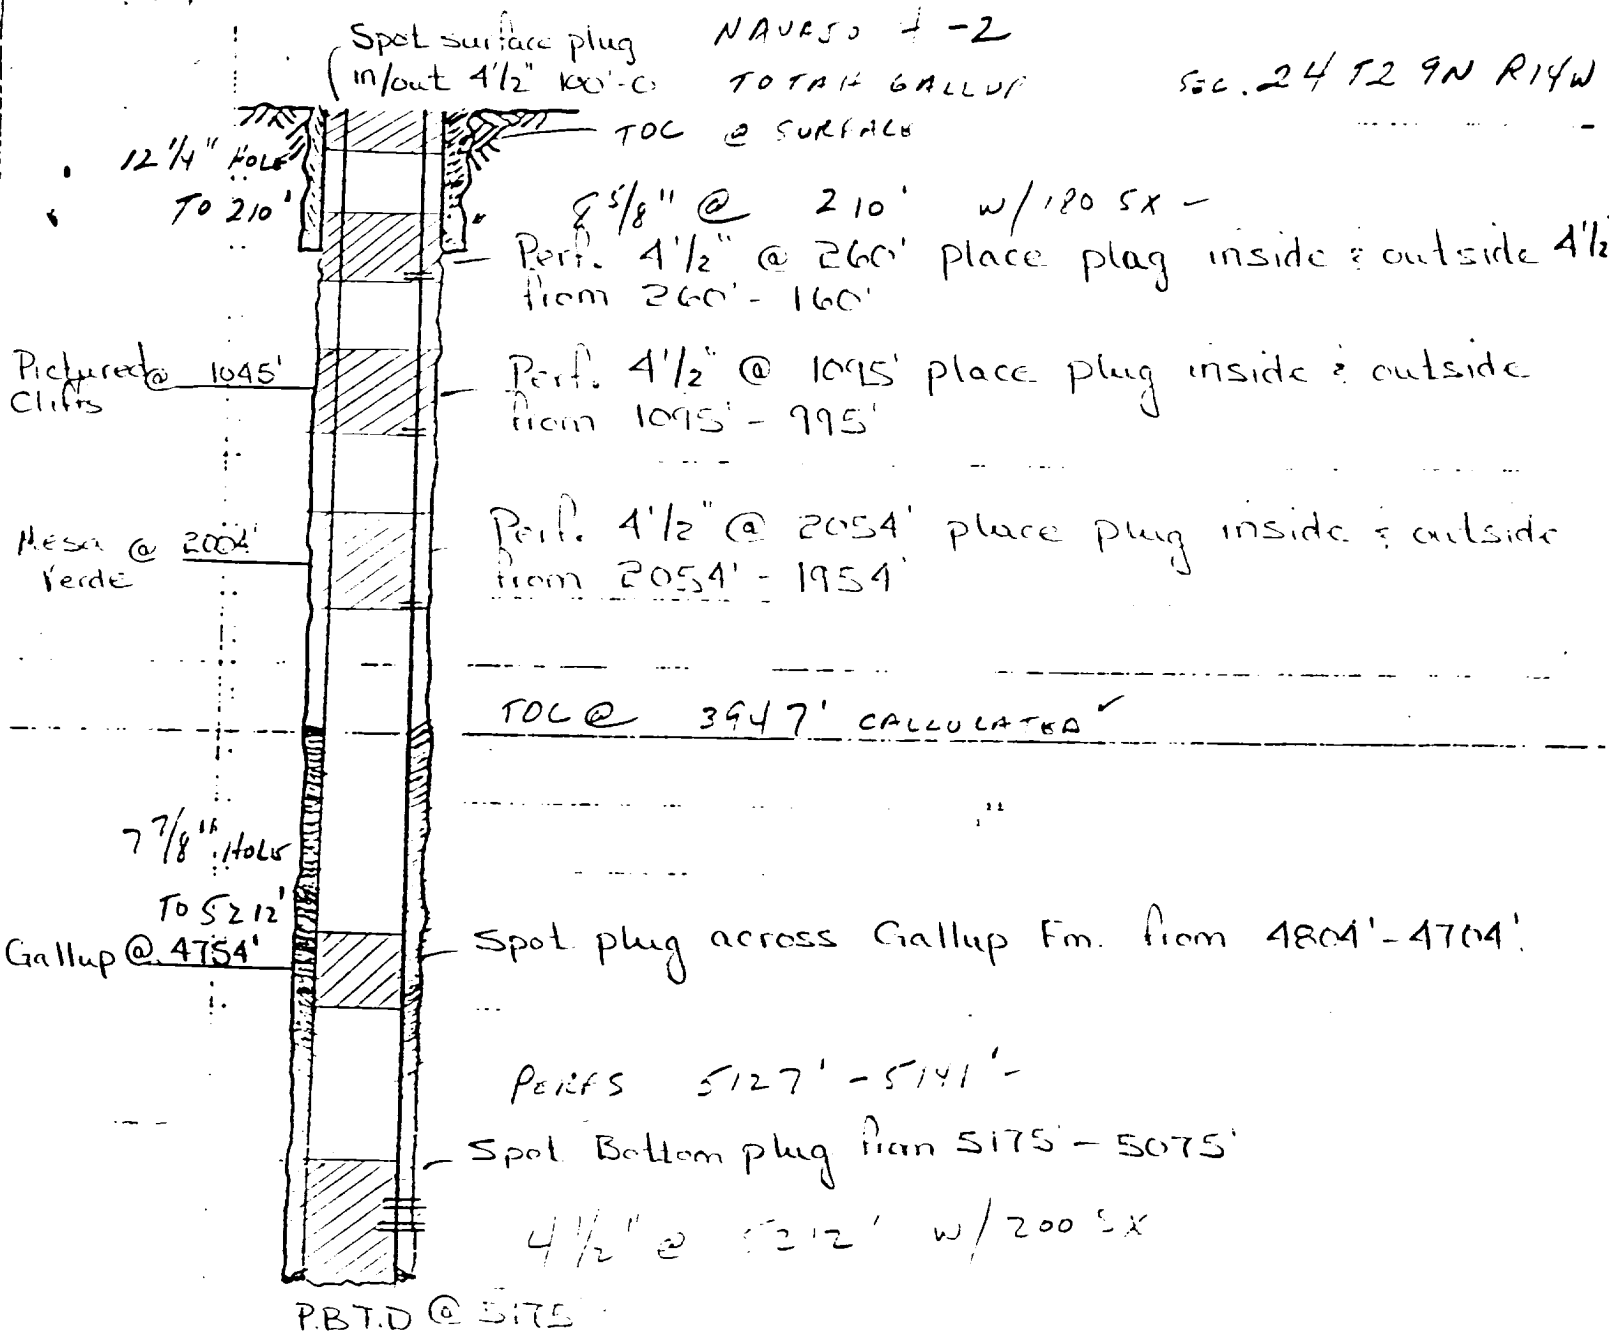 Spot surface plug
in/out 4 1/2" 100'-0
NAVAJO -2
TOTAH GALLUP
SEC. 24 T29N R14W
TOC @ SURFACE
12 1/4" HOLE
TO 210'
8 5/8" @ 210' w/180 SX -
Perf. 4 1/2" @ 260' place plug inside & outside 4 1/2
from 260' - 160'
Pictured @ 1045'
Cliffs
Perf. 4 1/2" @ 1095' place plug inside & outside
from 1095' - 995'
Mesa @ 2004'
Verde
Perf. 4 1/2" @ 2054' place plug inside & outside
from 2054' - 1954'
TOC @ 3947' CALCULATED ✓
7 7/8" HOLE
TO 5212'
Gallup @ 4754'
Spot plug across Gallup Fm. from 4804' - 4704'.
PERFS 5127' - 5141' -
Spot Bottom plug from 5175' - 5075'
4 1/2" @ 5212' w/200 SX
P.B.T.D @ 5175